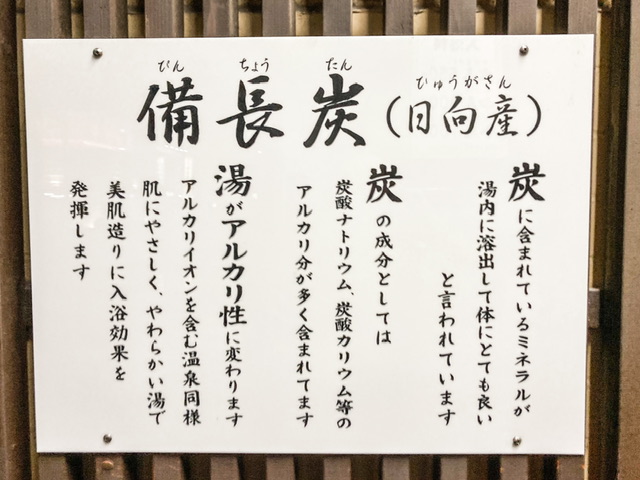 びんちょうたん
備長炭
ひゅうがさん
(日向産)
炭に含まれているミネラルが
湯内に溶出して体にとても良い
と言われています
炭の成分としては
炭酸ナトリウム、炭酸カリウム等の
アルカリ分が多く含まれてます
湯がアルカリ性に変わります
アルカリイオンを含む温泉同様
肌にやさしく、やわらかい湯で
美肌造りに入浴効果を
発揮します